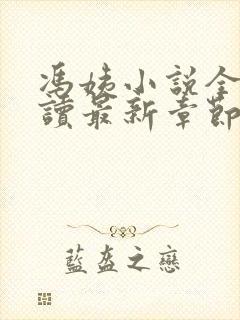 馮姨小説全
讀最新章節
藍盔之戀